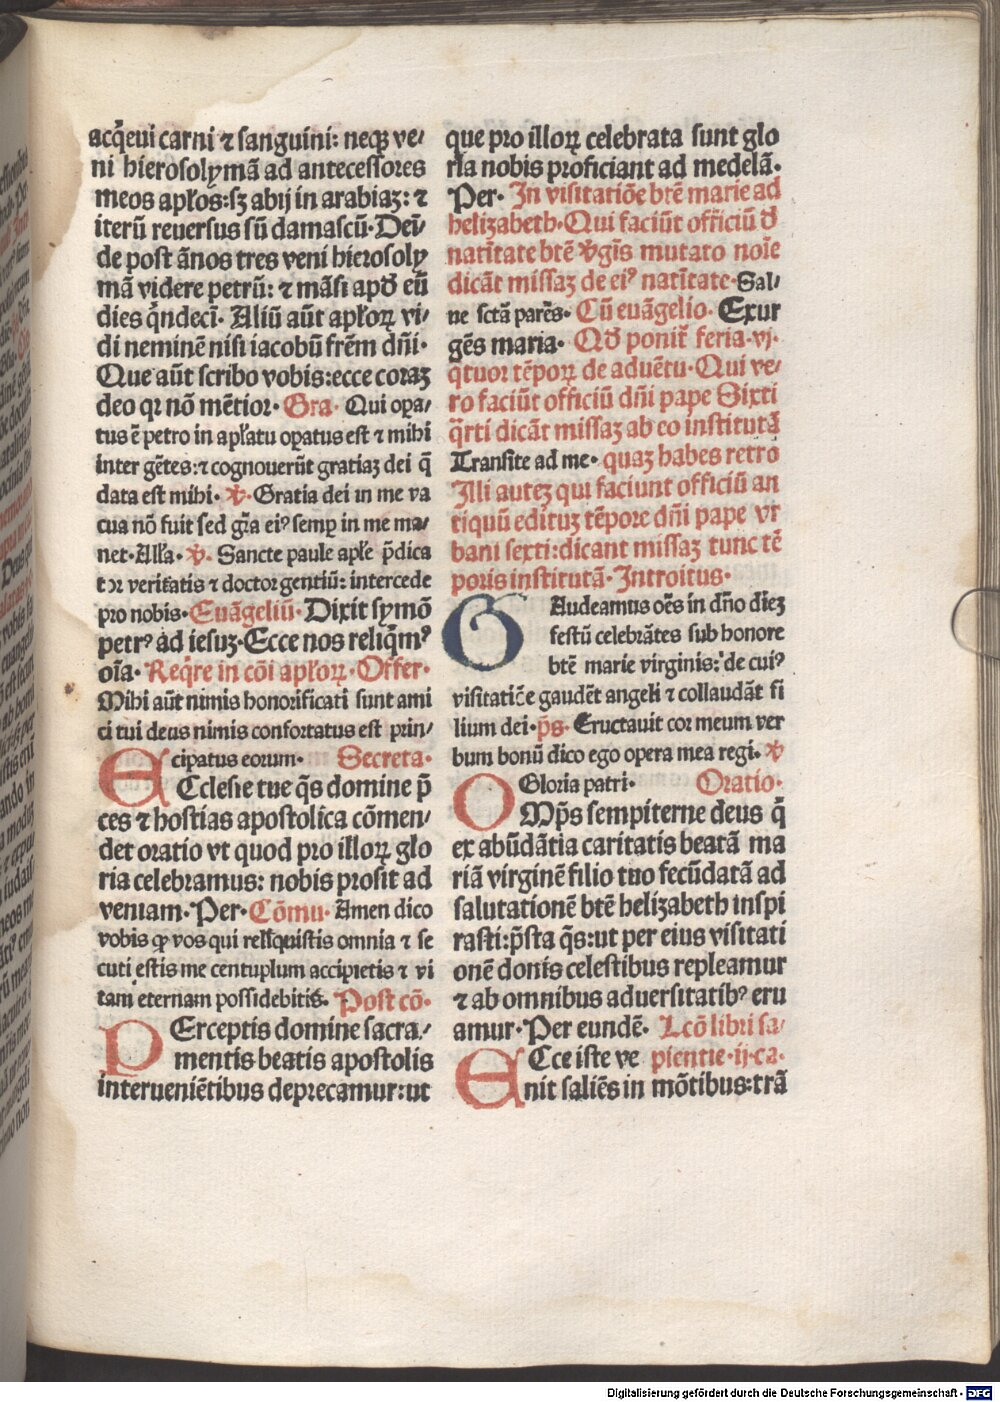 acq̃eui carni ⁊ sanguini: neqꝫ ve/
ni hierosolymã ad antecessores
meos apłos:sꝫ abij in arabiaꝫ: ⁊
iterũ reuersus sũ damascũ·Deĩ/
de post ãnos tres veni hierosoly
mã videre petrũ: ⁊ mãsi apđ eũ
dies q̃ndecĩ· Aliũ aũt apłoꝝ vi/
di neminẽ nisi iacobũ frẽm dñi·
Que aũt scribo vobis:ecce coraꝫ
deo qꝛ nõ mẽtior· Gra· Qui oꝑa/
tus ẽ petro in apłatu oꝑatus est ⁊ mihi
inter gẽtes:⁊ cognouerũt gratiaꝫ dei q̃
data est mihi· ℣· Gratia dei in me va
cua nõ fuit sed gr̃a eiꝰ semꝑ in me ma/
net·Alła· ℣· Sancte paule apłe p̃dica
toꝛ veritatis ⁊ doctor gentiũ: intercede
pro nobis· Euãgeliũ· Dixit symõ
petrꝰ ad iesuꝫ·Ecce nos reliq̃mꝰ
oĩa· Req̃re in cõi apłoꝝ· Offer·
Mihi aũt nimis honorificati sunt ami
ci tui deus nimis confortatus est prin/
cipatus eorum· Secreta·
ECclesie tue q̃s domine p̃
ces ⁊ hostias apostolica cõmen/
det oratio vt quod pro illoꝝ glo
ria celebramus: nobis prosit ad
veniam·Per· Cõmu· Amen dico
vobis ꝙ vos qui reliquistis omnia ⁊ se
cuti estis me centuplum accipietis ⁊ vi
tam eternam possidebitis· Post cõ·
PErceptis domine sacra/
mentis beatis apostolis
interueniẽtibus deprecamur:ut
que pro illoꝝ celebrata sunt glo
ria nobis proficiant ad medelã·
Per· In visitatiõe btẽ marie ad
helizabeth· Qui faciũt officiũ đ
natĩtate btẽ ꝟgĩs mutato noĩe
dicãt missaꝫ de eiꝰ natĩtate· Sal/
ue sctã parẽs· Cũ euãgelio· Exur
gẽs maria· Qđ ponit̃ feria·vj·
q̃tuor tẽpoꝝ de aduẽtu· Qui ve/
ro faciũt officiũ dñi pape Sixti
q̃rti dicãt missaꝫ ab eo institutã
Transite ad me· quaꝫ habes retro
Illi auteꝫ qui faciunt officiũ an
tiquũ edituꝫ tẽpore dñi pape vr
bani sexti:dicant missaꝫ tunc tẽ
poris institutã· Introitus·
GAudeamus oẽs in dño dieꝫ
festũ celebrãtes sub honore
btẽ marie virginis: de cuiꝰ
visitatiõe gaudẽt angeli ⁊ collaudãt fi
lium dei· p̃s· Eructauit cor meum ver
bum bonũ dico ego opera mea regi· ℣
Gloria patri· Oratio·
OMp̃s sempiterne deus q̃
ex abũdãtia caritatis beatã ma
riã virginẽ filio tuo fecũdatã ad
salutationẽ btẽ helizabeth inspi
rasti:p̃sta q̃s:ut per eius visitati
onẽ donis celestibus repleamur
⁊ ab omnibus aduersitatibꝰ eru
amur·Per eundẽ· Lcõ libri sa/
ECce iste ve pientie·ij·ca·
nit saliẽs in mõtibus:trã
Digitalisierung gefördert durch die Deutsche Forschungsgemeinschaft - DFG